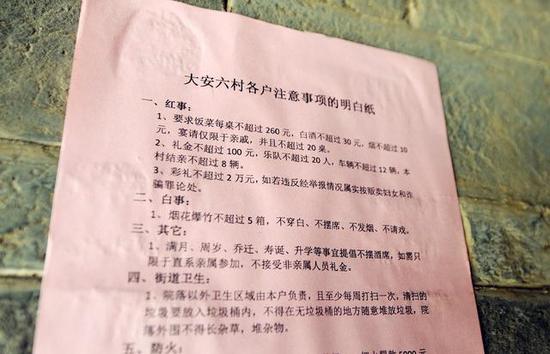 大安六村各户注意事项的明白纸
一、红事：
1、要求饭菜每桌不超过 260 元，白酒不超过 30 元，烟不超过 10
元，宴请仅限于亲戚，并且不超过 20 桌。
2、礼金不超过 100 元，乐队不超过 20 人，车辆不超过 12 辆，本
村结亲不超过 8 辆。
3、彩礼不超过 2 万元，如若违反经举报情况属实按贩卖妇女和诈
骗罪论处。
二、白事：
1、烟花爆竹不超过 5 箱，不穿白、不摆席、不发烟、不请戏。
三、其它：
1、满月、周岁、乔迁、寿诞、升学等事宜提倡不摆酒席，如需只
限于直系亲属参加，不接受非亲属人员礼金。
四、街道卫生：
1、院落以外卫生区域由本户负责，且至少每周打扫一次，清扫的
垃圾要放入垃圾桶内，不得在无垃圾桶的地方随意堆放垃圾，院
落外围不得长杂草，堆杂物。
五、防火：